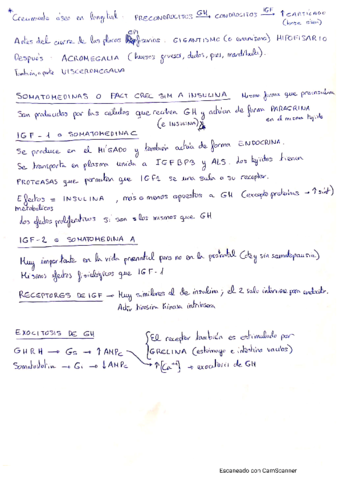 * Crecimiento óseo en longitud. PRECONDROCITOS GH→ CONDROCITOS IGF→ ↑ CARTILAGO
(hueso
Antes del cierre de las placas epifisarias: GIGANTISMO (o enanismo) HIPOFISARIO
Después: ACROMEGALIA (huesos gruesos, dedos, pies, mandíbula).
VISCEROMEGALIA
SOMATOMEDINAS O FACT CREC SIM A INSULINA
Son producidos por las celulas que reciben GH y actúan de forma PARACRINA
(e INSULINA) en el mismo tejido
IGF-1 o SOMATOMEDINA C
Se produce en el HÍGADO y también actúa de forma ENDOCRINA.
Se transporta en plasma unida a IGFBP3 y ALS. Los tejidos tienen
PROTEASAS que permiten que IGF1 se una solo a su receptor.
Efectos = INSULINA, más o menos opuestos a GH (excepto proteinas → ↑ sint)
metabólicos
Los efectos proliferativos si son los mismos que GH
IGF-2 o SOMATOMEDINA A
Muy importante en la vida prenatal pero no en la postnatal
Mismos efectos fisiológicos que IGF-1
RECEPTORES DE IGF → Muy similares al de insulina; el 2 solo interviene por
Act. tirosina Kinasa intrínseca
EXOCITOSIS DE GH
El receptor también es estimulado por
GHRH → Gs → ↑ AMPc
GRELINA (estómago e intestino vacíos)
Somatostatina → Gi → ↓ AMPc
↑[Ca²⁺] → exocitosis de GH
Escaneado con CamScanner